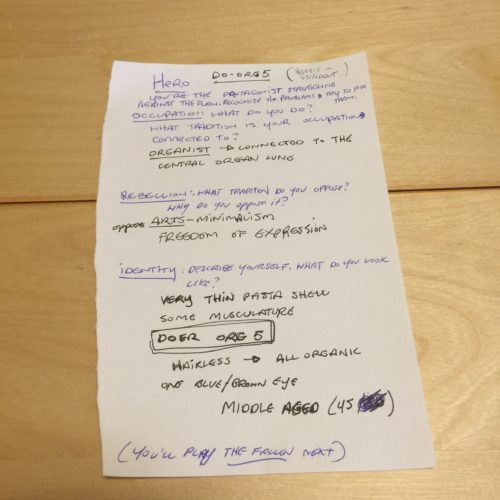 HERO DO-ORG5 (HEROIC-STUDENT)
YOU'RE THE PROTAGONIST STRUGGLING
AGAINST THE PLAN. RECOGNIZE the PROBLEMS & TRY TO FIX
THEM.
OCCUPATION: WHAT DO YOU DO?
WHAT TRADITION IS YOUR OCCUPATION
CONNECTED TO?
ORGANIST → CONNECTED TO THE
CENTRAL ORGAN LUNG
REBELLION: WHAT TRADITION DO YOU OPPOSE?
WHY DO YOU OPPOSE IT?
oppose ARTS - MINIMALISM
FREEDOM OF EXPRESSION
IDENTITY: DESCRIBE YOURSELF. WHAT DO YOU LOOK
LIKE?
VERY THIN PASTA SHELL
SOME MUSCULATURE
DOER ORG 5
HAIRLESS → ALL ORGANIC
ONE BLUE/BROWN EYE
MIDDLE AGED (45)
(YOU'LL PLAY THE FALLEN NEXT)